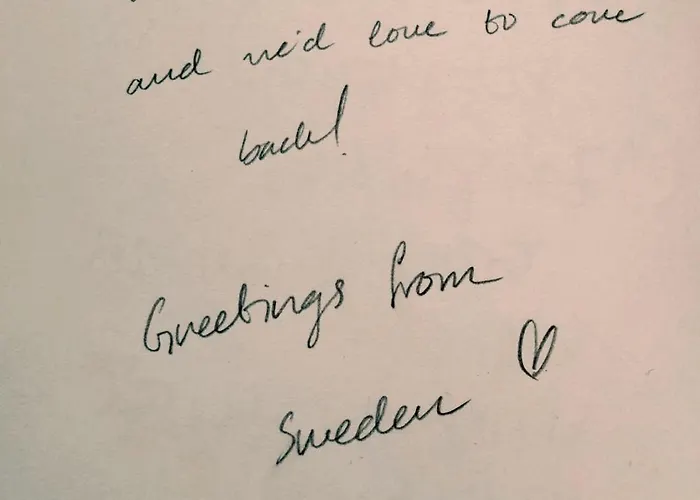 and we'd love to come
back!
Greetings from
Sweden ♡